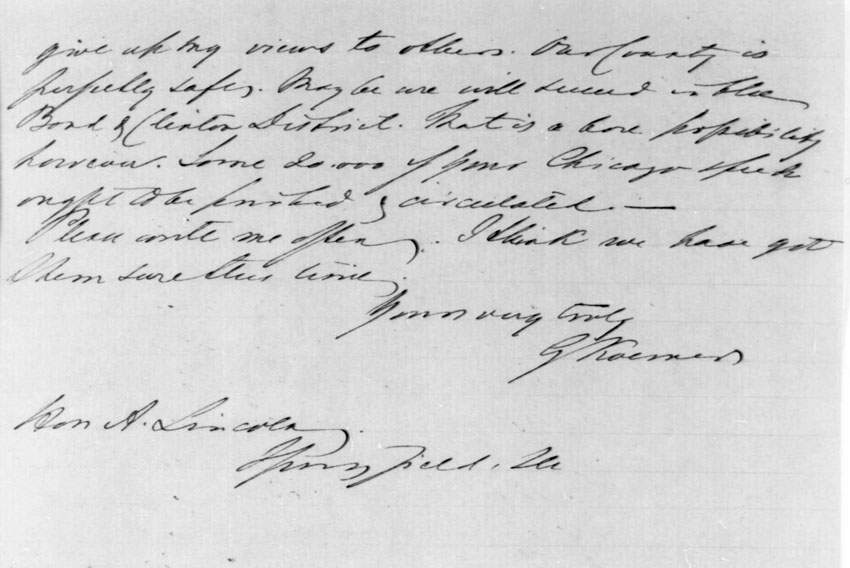 give up my views to others. Our County is
perfectly safe. May be we will succeed in the
Bond & Clinton District. That is a bare possibility
however. Some 20.000 of your Chicago speech
ought to be printed & circulated. —
Please write me often. I think we have got
them sure this time.
Yours very truly
G Koerner
Hon A. Lincoln
Springfield, Ill